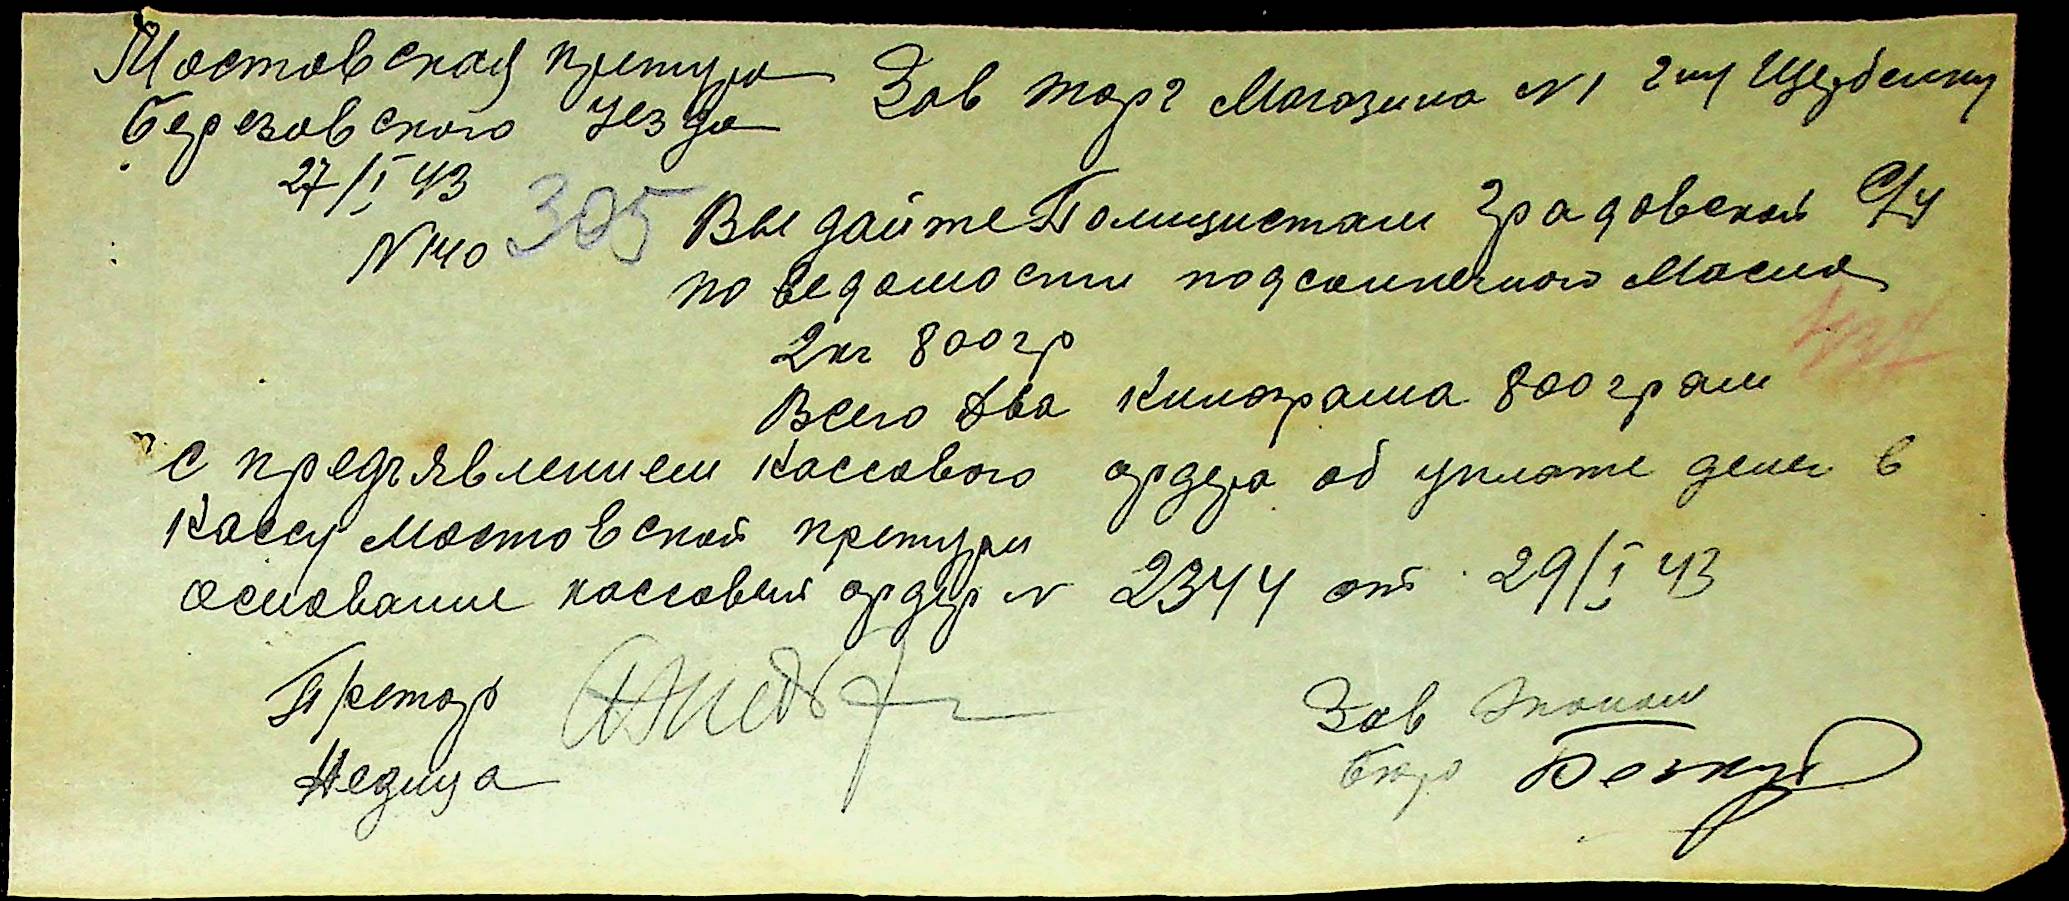 Мостовская претура
Березовского Уезда
27/I 43
N 140
305
Зав торг Магазина N 1 г-ну Щербенку
Выдайте Полицистам Градовской С/у
по ведомости подсолнечного Масла
2 кг 800 гр
Всего два килограма 800 грам
с предъявлением кассового ордера об уплате денег в
кассу Мостовской претуры
основание кассовый ордер N 2344 от 29/I 43
Претор
Недица
Зав Эконом
бюро